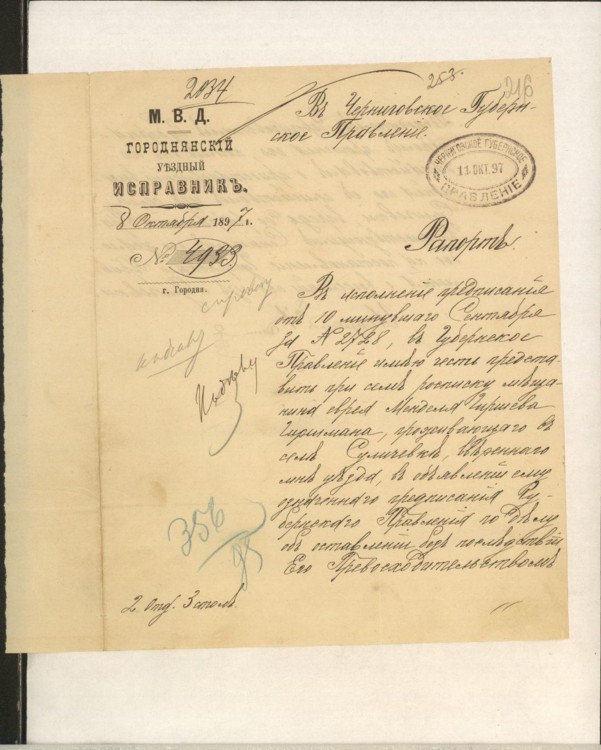 2034
253.
216
М. В. Д.
ГОРОДНЯНСКІЙ
УѢЗДНЫЙ
ИСПРАВНИКЪ.
8 Октября 1897 г.
№ 4933
г. Городня.
Въ Черниговское Губерн-
ское Правленіе.
ЧЕРНИГОВСКОЕ ГУБЕРНСКОЕ
11 ОКТ. 97
ПРАВЛЕНІЕ
Рапортъ.
Въ исполненіе предписанія
отъ 10 минувшаго Сентября
за № 2728, въ Губернское
Правленіе имѣю честь предста-
вить при семъ росписку мѣща-
нина еврея Менделя Гиршева
проживающаго въ
селѣ Суличевкѣ, ввѣреннаго
мнѣ уѣзда, въ объявленіи ему
означеннаго предписанія Гу-
бернскаго Правленія по дѣлу
объ оставленіи безъ послѣдствій
Его Превосходительствомъ
356
95
2 отд. 3 столъ.